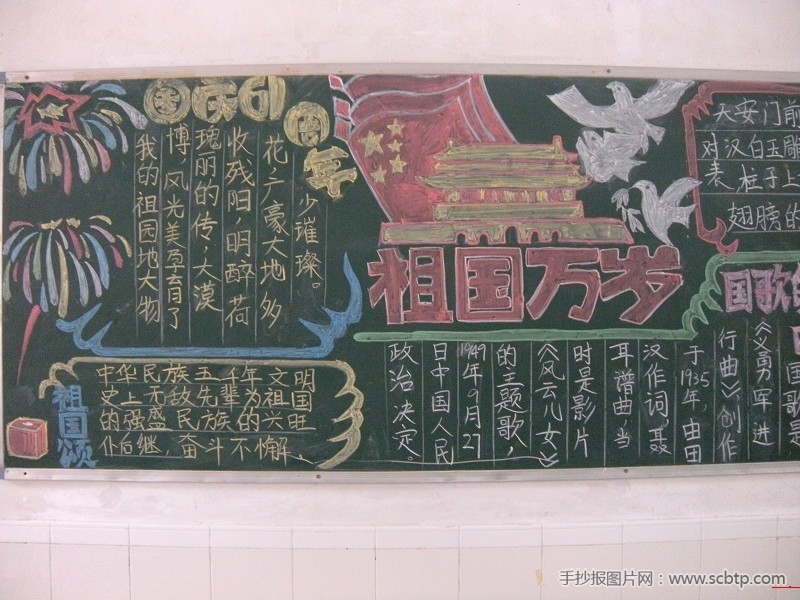 国庆61周年
我的祖国地大物
博,风光美孕育了
瑰丽的传,大漠
收残阳,明醉荷
花广豪大地多
少璀璨。
祖国颂
中华民族五千年文明
史上无敌先辈为祖国
的强盛民族的兴旺
仆后继,奋斗不懈、
祖国万岁
天安门前
对汉白玉雕
表柱子上
翅膀的
国歌的
国歌是
《义勇军进
行曲》创作
于1935年,由田
汉作词,聂
耳谱曲当
时是影片
《风云儿女》
的主题歌,
1949年9月27
日中国人民
政治决定。
手抄报图片网:www.scbtp.com